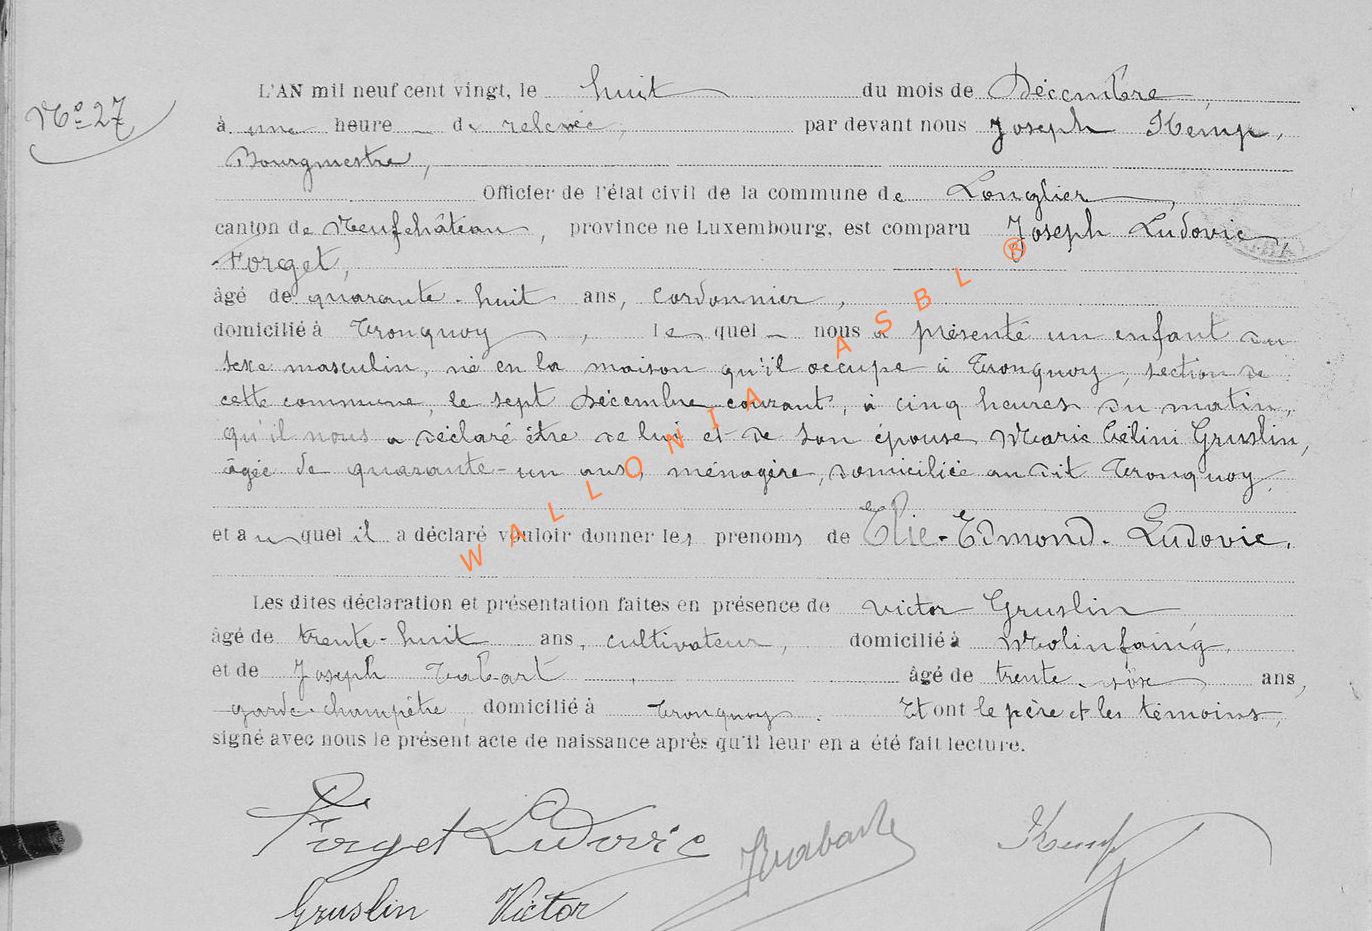 No 27
L'AN mil neuf cent vingt, le huit du mois de Décembre,
à une heure de relevée, par devant nous Joseph Kemp,
Bourgmestre,
Officier de l'état civil de la commune de Longlier,
canton de Neufchâteau, province ne Luxembourg, est comparu Joseph Ludovic
Forget,
âgé de quarante-huit ans, cordonnier,
domicilié à Tronquoy, lequel nous a présenté un enfant du
sexe masculin, né en la maison qu'il occupe à Tronquoy, section de
cette commune, le sept Décembre courant, à cinq heures du matin,
qu'il nous a déclaré être de lui et de son épouse Marie Célini Gruslin,
âgée de quarante-un ans, ménagère, domiciliée au dit Tronquoy,
et auquel il a déclaré vouloir donner les prenoms de Elie-Edmond-Ludovic.
Les dites déclaration et présentation faites en présence de Victor Gruslin
âgé de trente-huit ans, cultivateur, domicilié à Molinfaing,
et de Joseph âgé de trente ans,
garde-champêtre, domicilié à Tronquoy. Et ont le père et les témoins,
signé avec nous le présent acte de naissance après qu'il leur en a été fait lecture.
Forget Ludovic Kemp
Gruslin Victor
WALLONIA ASBL ®